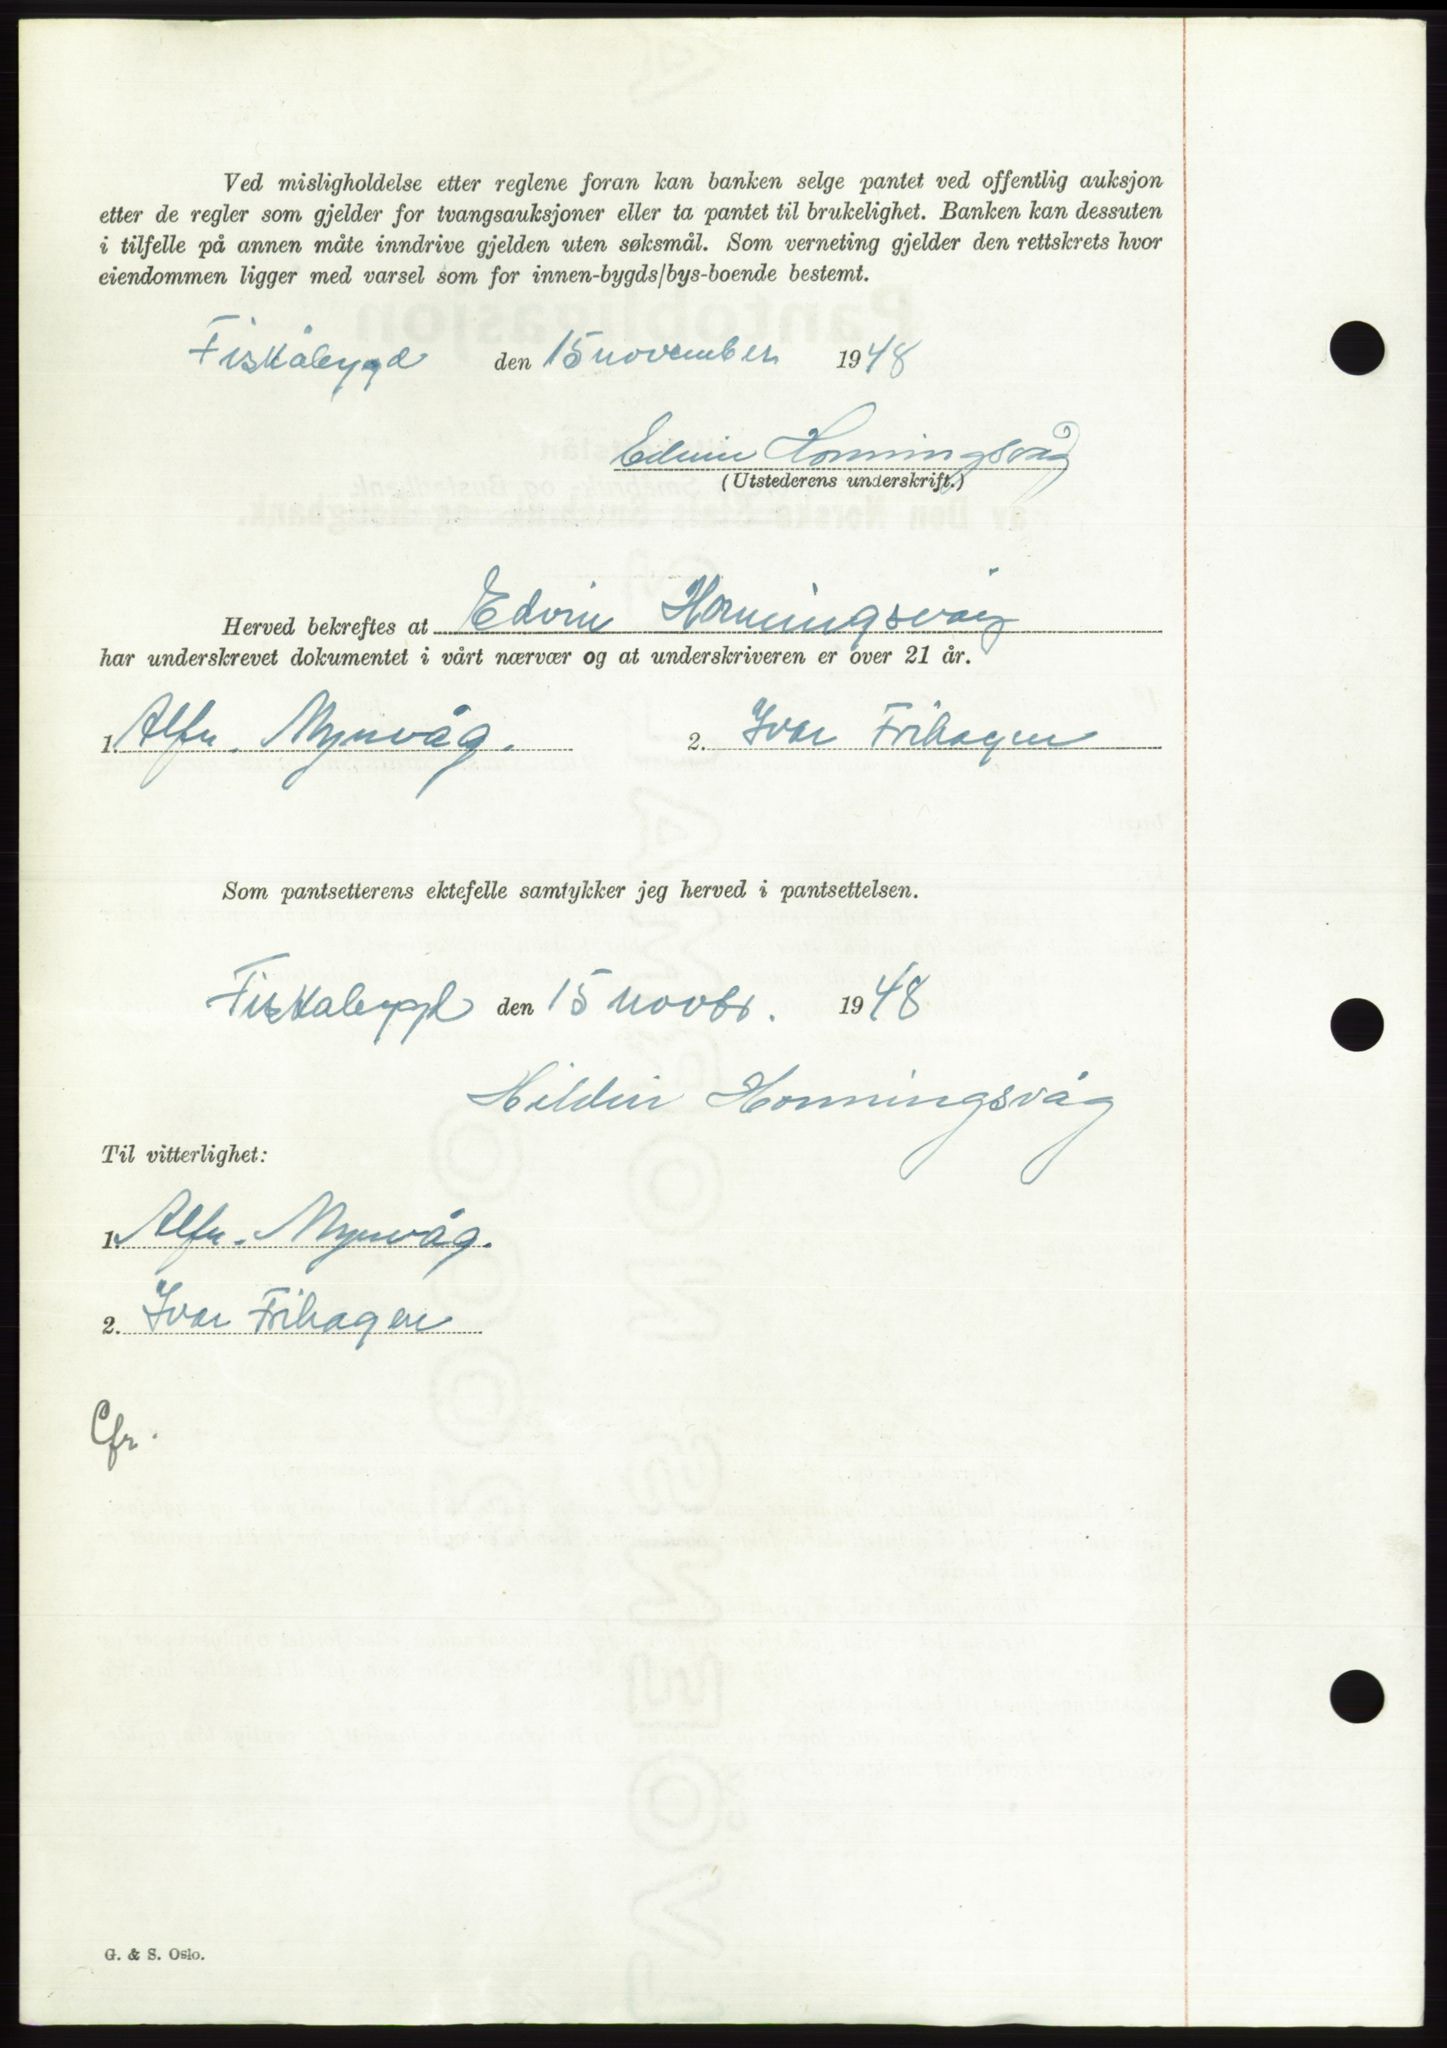 Ved misligholdelse etter reglene foran kan banken selge pantet ved offentlig auksjon
etter de regler som gjelder for tvangsauksjoner eller ta pantet til brukelighet. Banken kan dessuten
i tilfelle på annen måte inndrive gjelden uten søksmål. Som verneting gjelder den rettskrets hvor
eiendommen ligger med varsel som for innen-bygds/bys-boende bestemt.
Fiskåbygd den 15 november 1948
Edvin Honningsvåg
(Utstederens underskrift.)
Herved bekreftes at Edvin Honningsvåg
har underskrevet dokumentet i vårt nærvær og at underskriveren er over 21 år.
1. Alfr. Myrvåg. 2. Ivar Frihagen
Som pantsetterens ektefelle samtykker jeg herved i pantsettelsen.
Fiskåbygd den 15 novbr. 1948
Honningsvåg
Til vitterlighet:
1. Alfr. Myrvåg.
2. Ivar Frihagen
Cfr.
G. & S. Oslo.